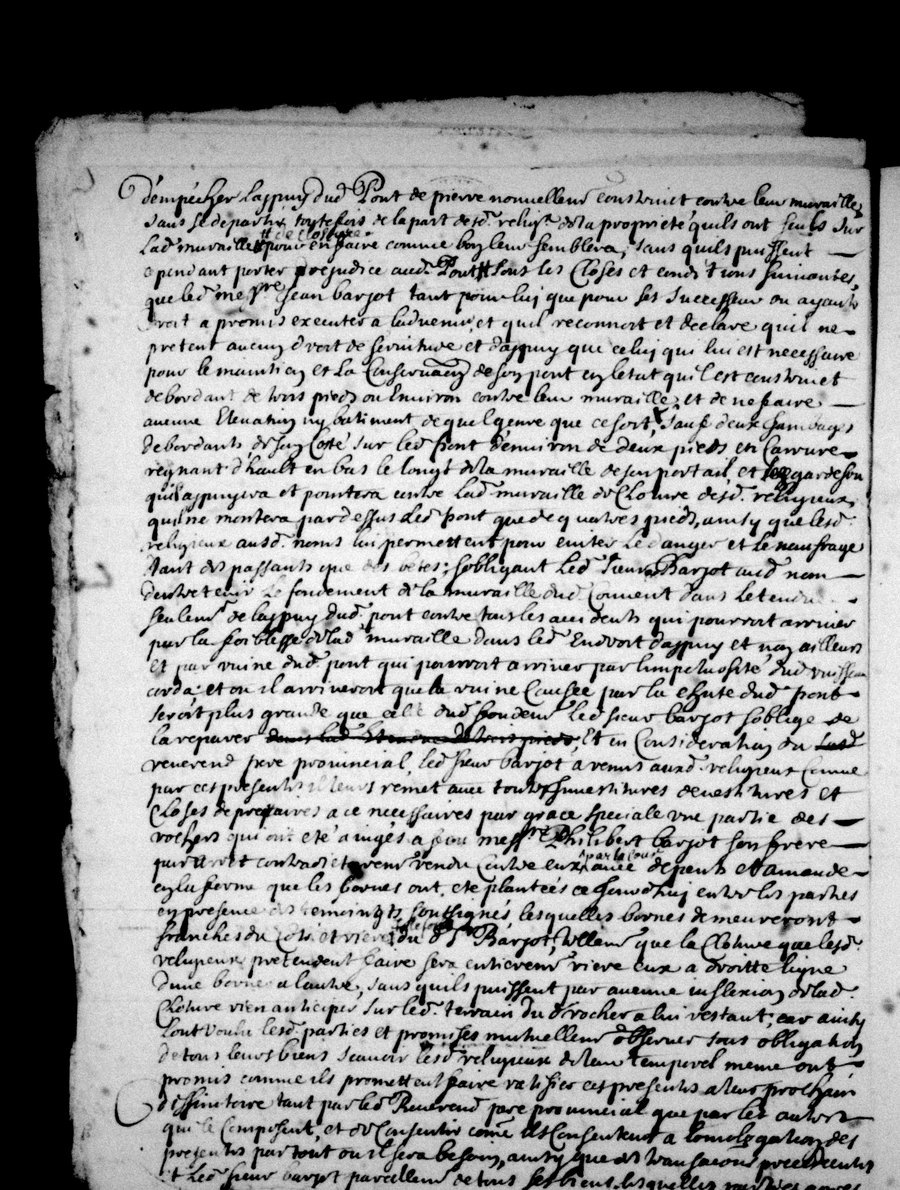 d'empécher lappuy dud. Pont de pierre nouvellemt construict contre leur muraille
sans se departir toutefois de la part desd. religx de la propriété quils ont seuls sur
Lad. muraille # pour en faire comme bon leur semblera, sans quils puissent
# de Closture
cependant porter prejudice aud. Pont # sous les Closes et conditions suivantes,
que led. messre Jean barjot tant pour lui que pour ses successeur ou ayants
droit a promis executer a ladvenir, et quil reconnoit et declare quil ne
pretent aucun droit de servitude et dappuy que celuy qui lui est necessaire
pour le maintien et La Conservaon de son pont en letat quil est construict
debordant de trois pieds ou Environ contre leur muraille, et de ne faire
aucune Elevation ny batiment de quel genre que ce soit, sauf deux Jambages
debordants de son Coté sur led. pont denviron de deux pieds en Carrure
regnant d'hault en bas le longt de la muraille de son portail, et garde fou
quil appuyera et pointera contre Lad. muraille de Cloture desd. religieux,
qui ne montera par dessus Led. pont que de quatres pieds, ainsy que lesd.
religieux ausd. noms lui permettent pour eviter Le danger et Le naufrage
tant des passants que des betes; sobligant Led. sieur Barjot aud. nom
dentretenir Le fondement de la muraille dud. Couvent dans Letendue
seulemt de lappuy dud. pont contre tous les accidents qui pourront arriver
par la foiblesse de lad. muraille dans led. Endroit dappuy et non ailleurs
et par ruine dud. pont qui pourroit arriver par limpetuosité dud. ruisseau
darda: et ou il arriveroit que la ruine Causée par la chute dud. pont
seroit plus grande que celle dud. fondemt led. sieur barjot soblige de
la reparer, Et en Consideration du
reverend pere provincial, led. sieur barjot a remis auxd. religieux Comme
par ces presentes il leurs remet avec toutes investitures devestitures et
Closes de precaires a ce necessaires par grace speciale une partie des
rochers qui ont eté a feu messre Philibert barjot son frere
par arret contradictoiremt rendu entre eux avec depents et amande
par la Cour
en la forme que les bornes ont eté plantées ce jourdhuy entre les parties
en presence des temoingts soussignés lesquelles bornes demeureront
franches du du dt Sr Barjot, tellemt que la Cloture que lesd.
religieux pretendent faire sera entieremt riere eux a droitte ligne
dune borne a lautre, sans quils puissent par aucune inflexion de lad.
Cloture rien anticiper sur led. terrain du dt rocher a lui restant, car ainsy
Lont voulu lesd. parties et promises mutuellemt d'observer sous obligation
de tous leurs biens scavoir lesd. religieux de leur temporel meme ont
promis comme ils promettent faire ratifier ces presentes a leur prochain
deffinitoire tant par led. Reverend pere provincial que par les autres
qui le Composent, et de Consentir come ils Consentent a lomologation des
presentes partout ou il sera besoin, ainsy que des transactions precedentes
et Led. sieur barjot pareillemt de tous ses biens lesquelles